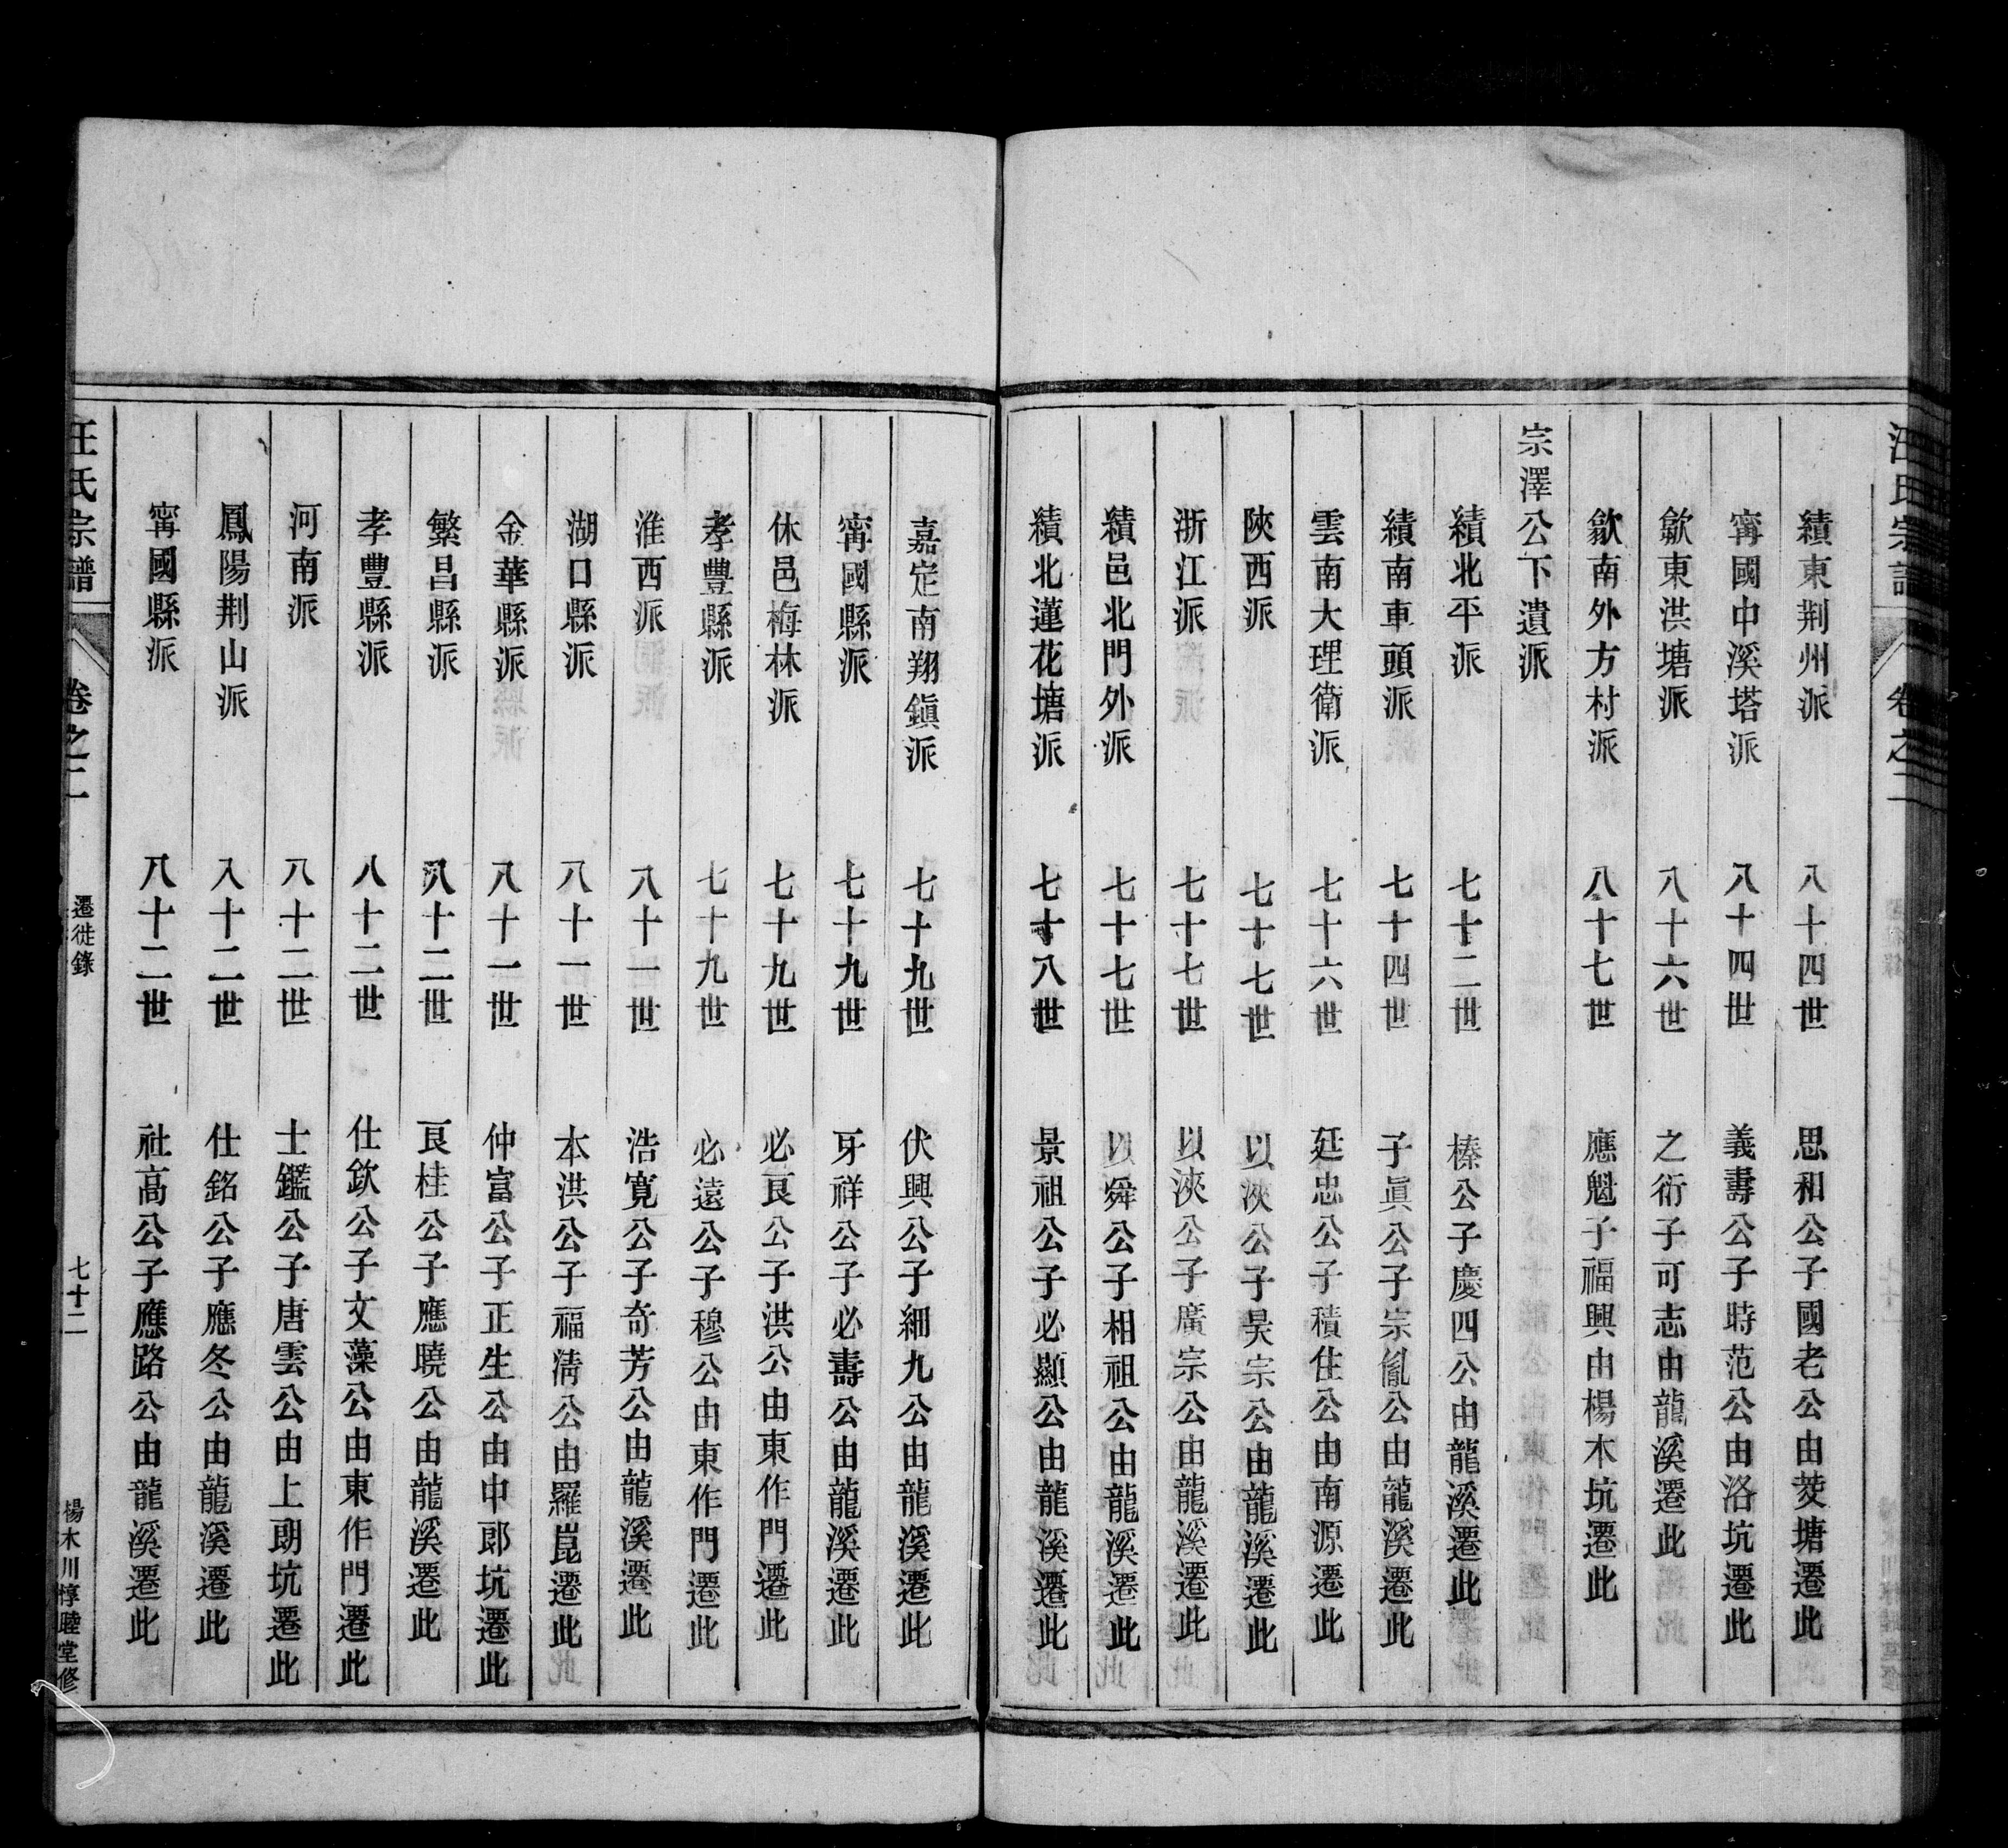 汪氏宗譜 卷之二
績東荆州派 八十四世 思和公子國老公由茭塘遷此
寧國中溪塔派 八十四世 義壽公子時范公由洛坑遷此
歙東洪塘派 八十六世 之衍子可志由龍溪遷此
歙南外方村派 八十七世 應魁子福興由楊木坑遷此
宗澤公下遺派
績北平派 七十二世 榛公子慶四公由龍溪遷此
績南車頭派 七十四世 子眞公子宗胤公由龍溪遷此
雲南大理衛派 七十六世 廷忠公子積住公由南源遷此
陜西派 七十七世 以浹公子昊宗公由龍溪遷此
浙江派 七十七世 以浹公子廣宗公由龍溪遷此
績邑北門外派 七十七世 以舜公子相祖公由龍溪遷此
績北蓮花塘派 七十八世 景祖公子必顯公由龍溪遷此
嘉定南翔鎭派 七十九世 伏興公子細九公由龍溪遷此
甯國縣派 七十九世 牙祥公子必壽公由龍溪遷此
休邑梅林派 七十九世 必良公子洪公由東作門遷此
孝豐縣派 七十九世 必遠公子穆公由東作門遷此
淮西派 八十一世 浩寬公子奇芳公由龍溪遷此
湖口縣派 八十一世 本洪公子福淸公由羅崑遷此
金華縣派 八十一世 仲富公子正生公由中郎坑遷此
繁昌縣派 八十二世 良桂公子應曉公由龍溪遷此
孝豐縣派 八十二世 仕欽公子文藻公由東作門遷此
河南派 八十二世 士鑑公子唐雲公由上朗坑遷此
鳳陽荆山派 八十二世 仕銘公子應冬公由龍溪遷此
甯國縣派 八十二世 社高公子應路公由龍溪遷此
汪氏宗譜 卷之二 遷徙錄 七十二 楊木川惇睦堂修